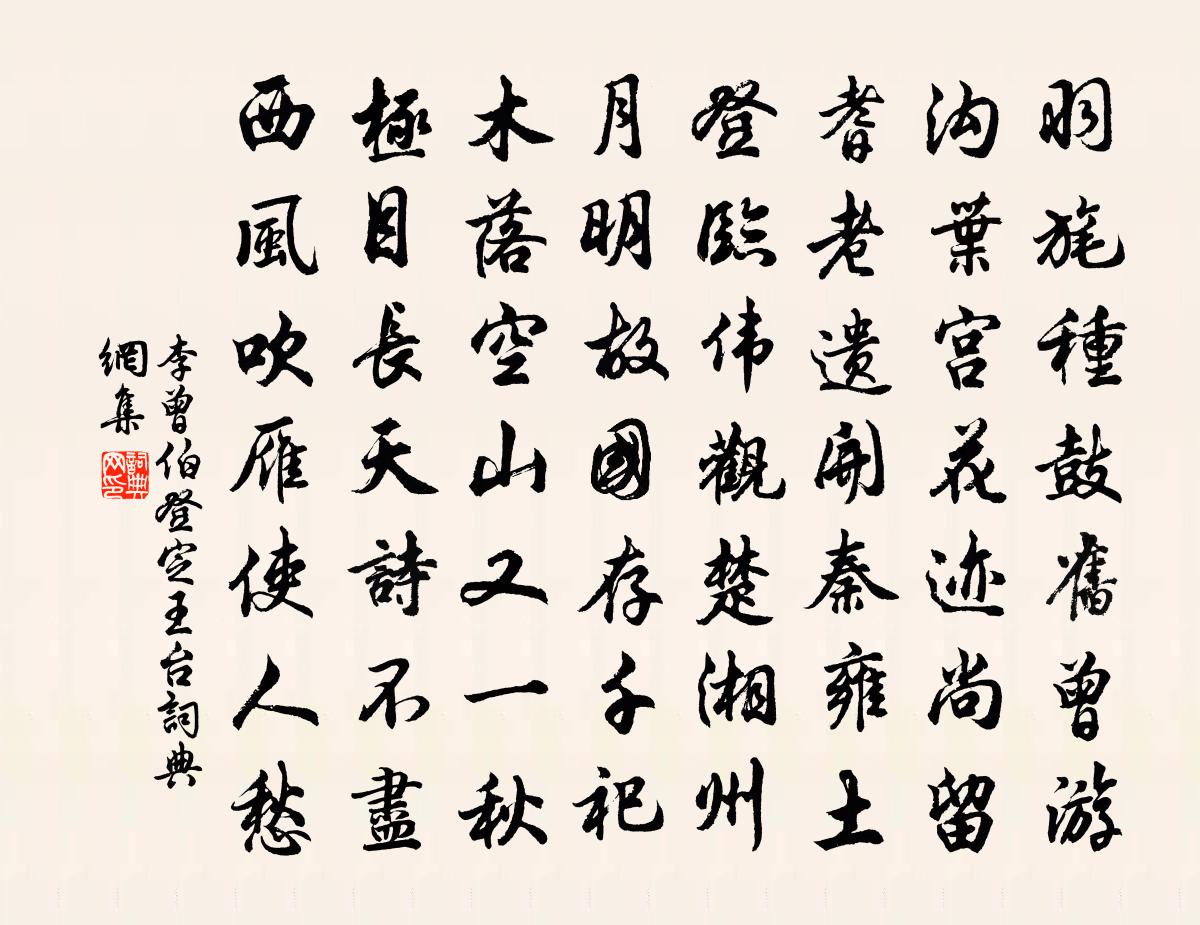 羽旄種鼓舊曾游
沟葉宫花迹尚留
耆老遗開秦雍土
登臨伟觀楚湘州
月明故國存千祀
木落空山又一秋
極目長天詩不盡
西風吹雁使人愁
李曾伯登定王台詞典
網集
詞典
网印